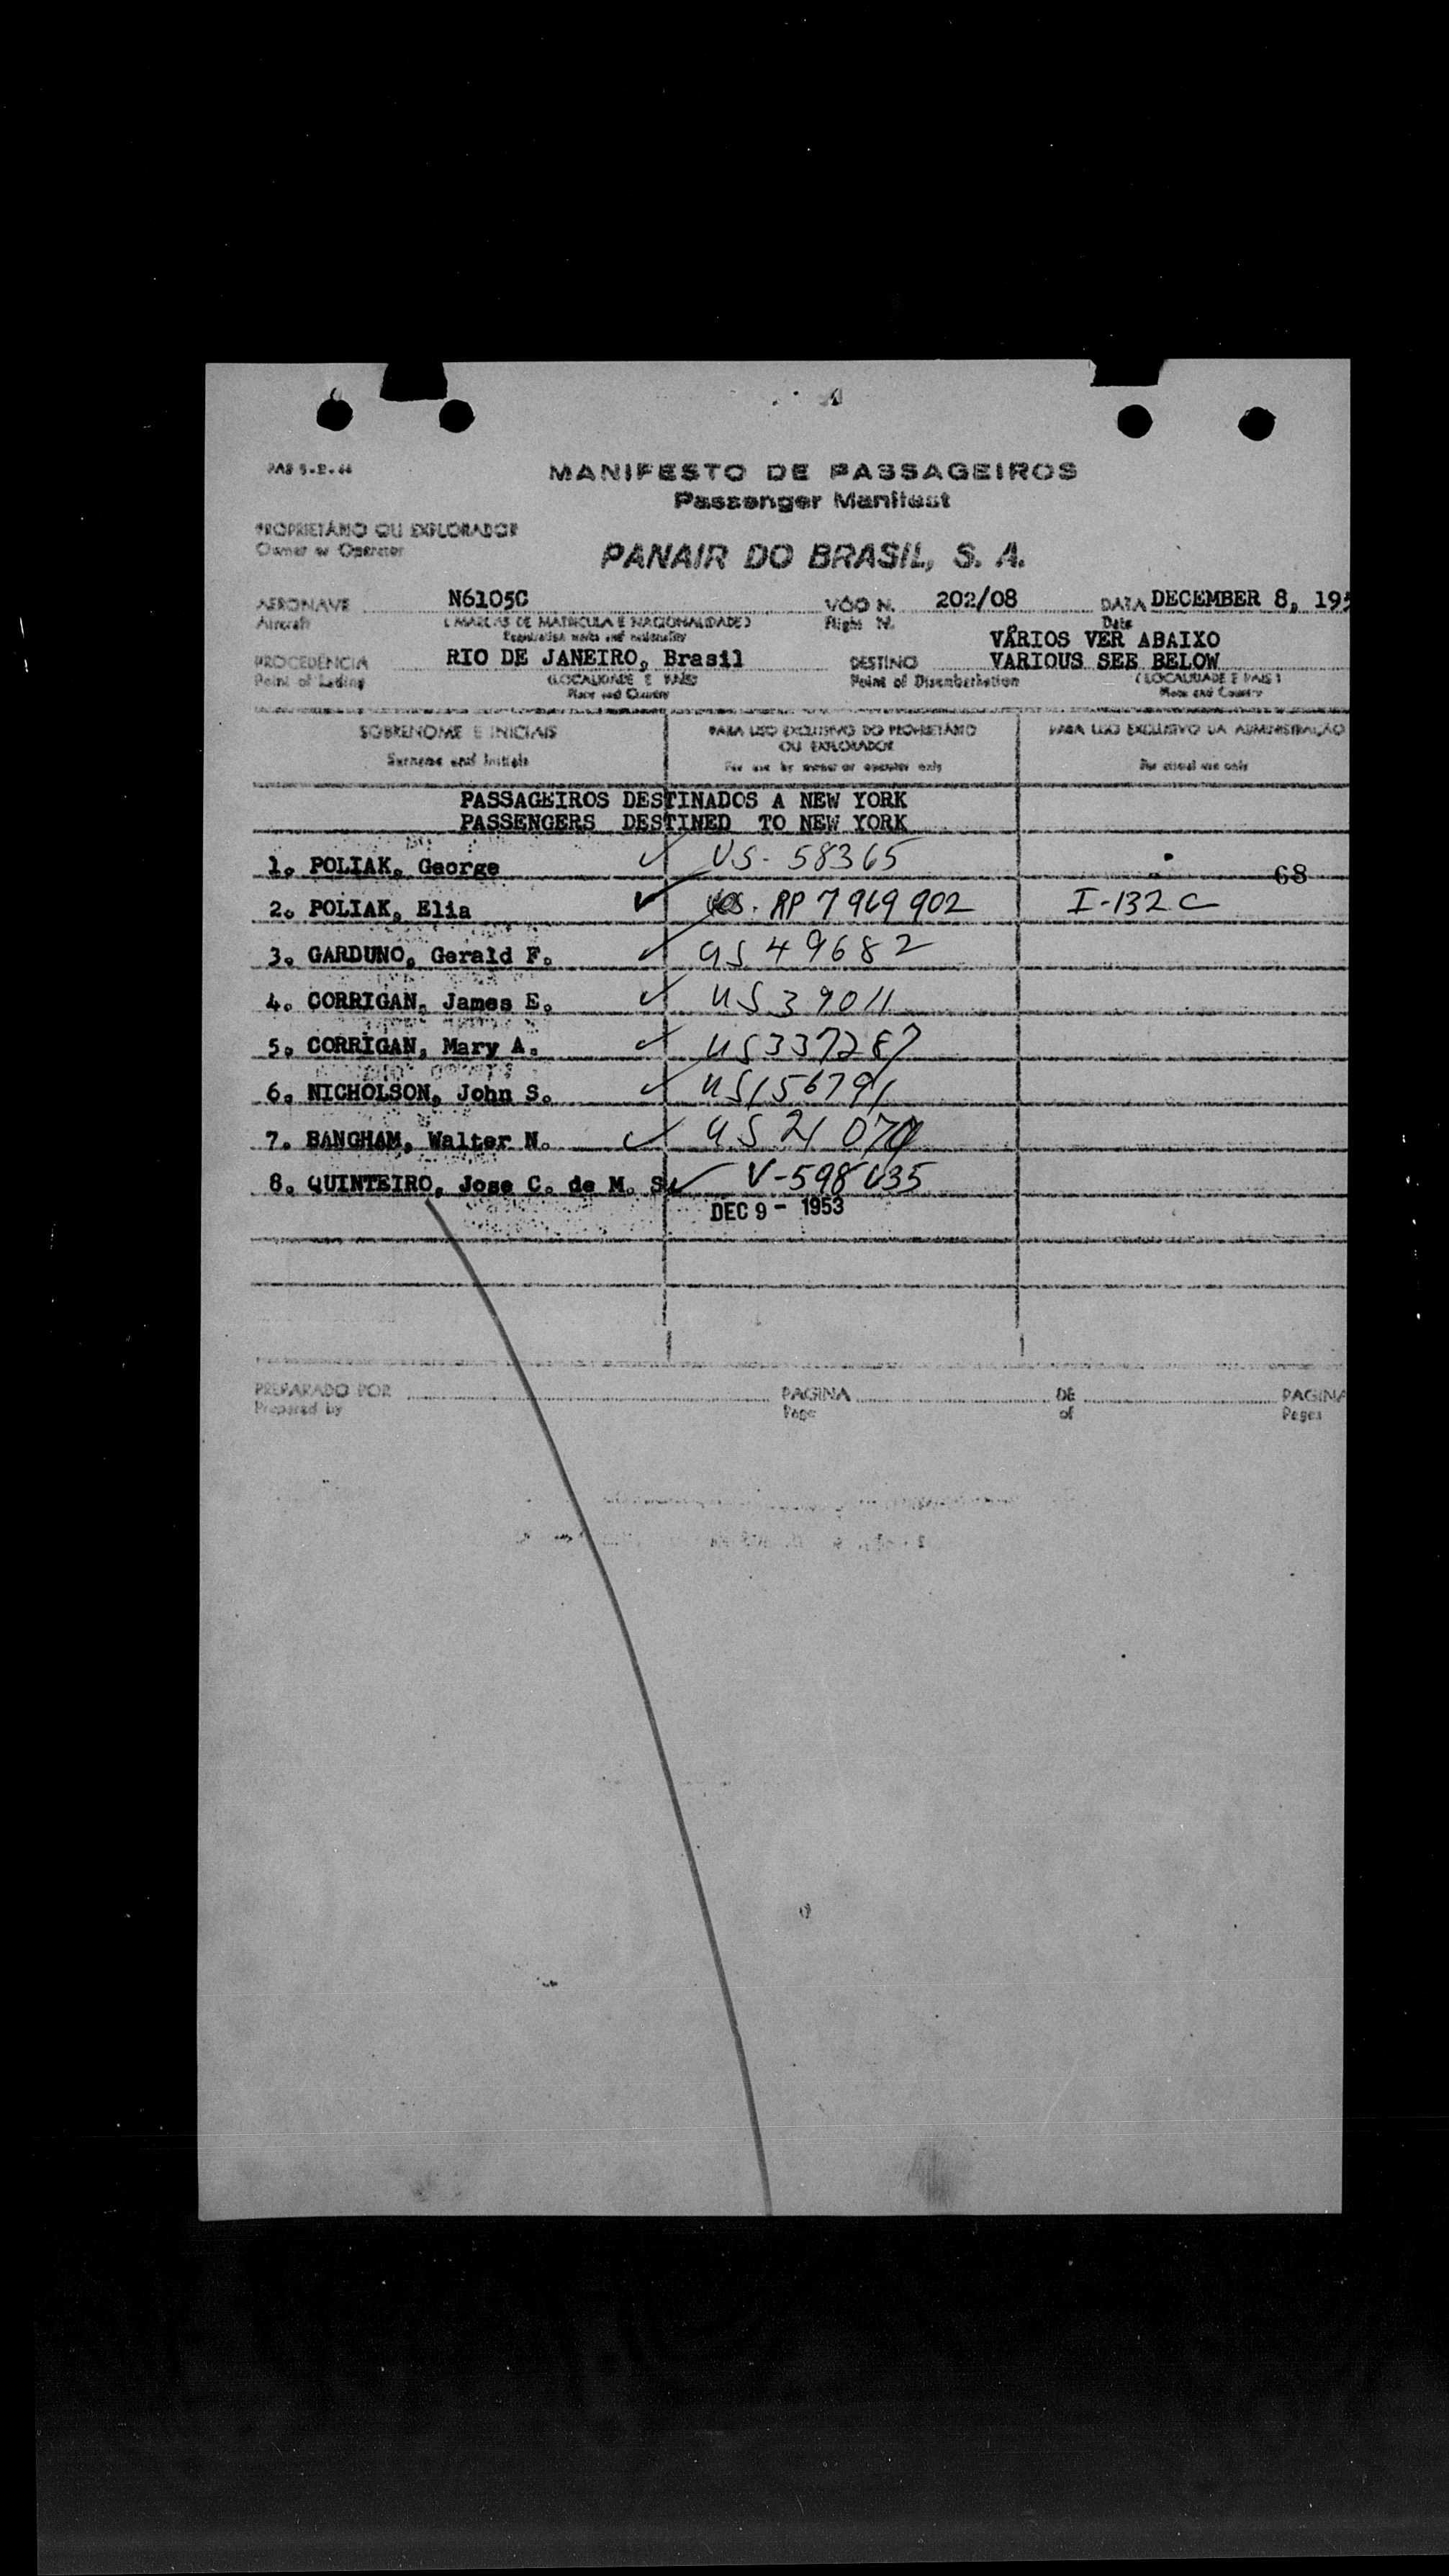 PAB 5-E-44
MANIFESTO DE PASSAGEIROS
Passenger Manifest
PROPRIETÁRIO OU EXPLORADOR
Owner or Operator
PANAIR DO BRASIL, S. A.
AERONAVE N6105C VÔO N. 202/08 DATA DECEMBER 8, 195
Aircraft (MARCAS DE MATRICULA E NACIONALIDADE) Flight N. Date
Registration marks and nationality
VÁRIOS VER ABAIXO
PROCEDÊNCIA RIO DE JANEIRO, Brasil DESTINO VARIOUS SEE BELOW
Point of Lading (LOCALIDADE E PAÍS) Point of Disembarkation (LOCALIDADE E PAÍS)
Place and Country Place and Country
SOBRENOME E INICIAIS PARA USO EXCLUSIVO DO PROPRIETÁRIO PARA USO EXCLUSIVO DA ADMINISTRAÇÃO
OU EXPLORADOR
Surname and Initials For use by owner or operator only For official use only
PASSAGEIROS DESTINADOS A NEW YORK
PASSENGERS DESTINED TO NEW YORK
1. POLIAK, George ✓ US- 58365
68
2. POLIAK, Elia ✓ RP 7969902 I-132C
3. GARDUNO, Gerald F. ✓ US 49682
4. CORRIGAN, James E. ✓ US39011
5. CORRIGAN, Mary A. ✓ US337287
6. NICHOLSON, John S. ✓ US156791
7. BANGHAM, Walter N. ✓ US
8. QUINTEIRO, Jose C. de M. S. ✓
DEC 9 - 1953
PREPARADO POR PAGINA DE PAGINA
Prepared by Page of Pages